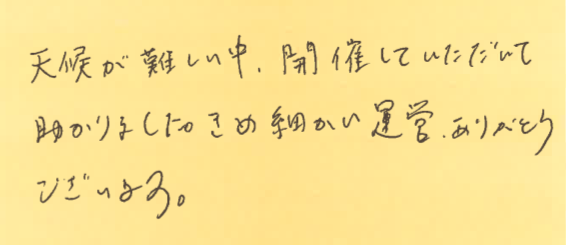 天候が難しい中、開催していただいて
助かりました。きめ細かい運営、ありがとう
ございます。